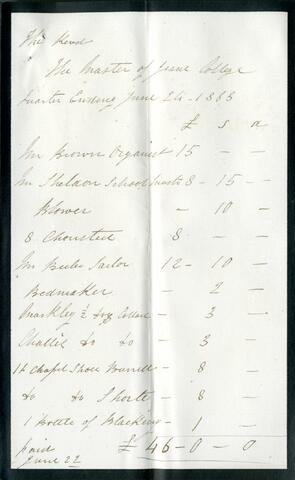 The Revd
The Master of Jesus College
Quarter Ending June 24 - 1868
£ s d
Mr Brown Organist 15 - -
Mr Sheldon Schoolmaster 8 - 15 -
Blower - 10 -
8 Choristers 8 - -
Mr Beeler Tailor 12 - 10 -
Bedmaker - 2 -
Markley ½ doz Collars - 3 -
Challis do do - 3 -
14 Chapel Shoe - 8 -
do do Shorte - 8 -
1 Bottle of Blacking - 1 -
paid £ 46 - 0 - 0
June 22